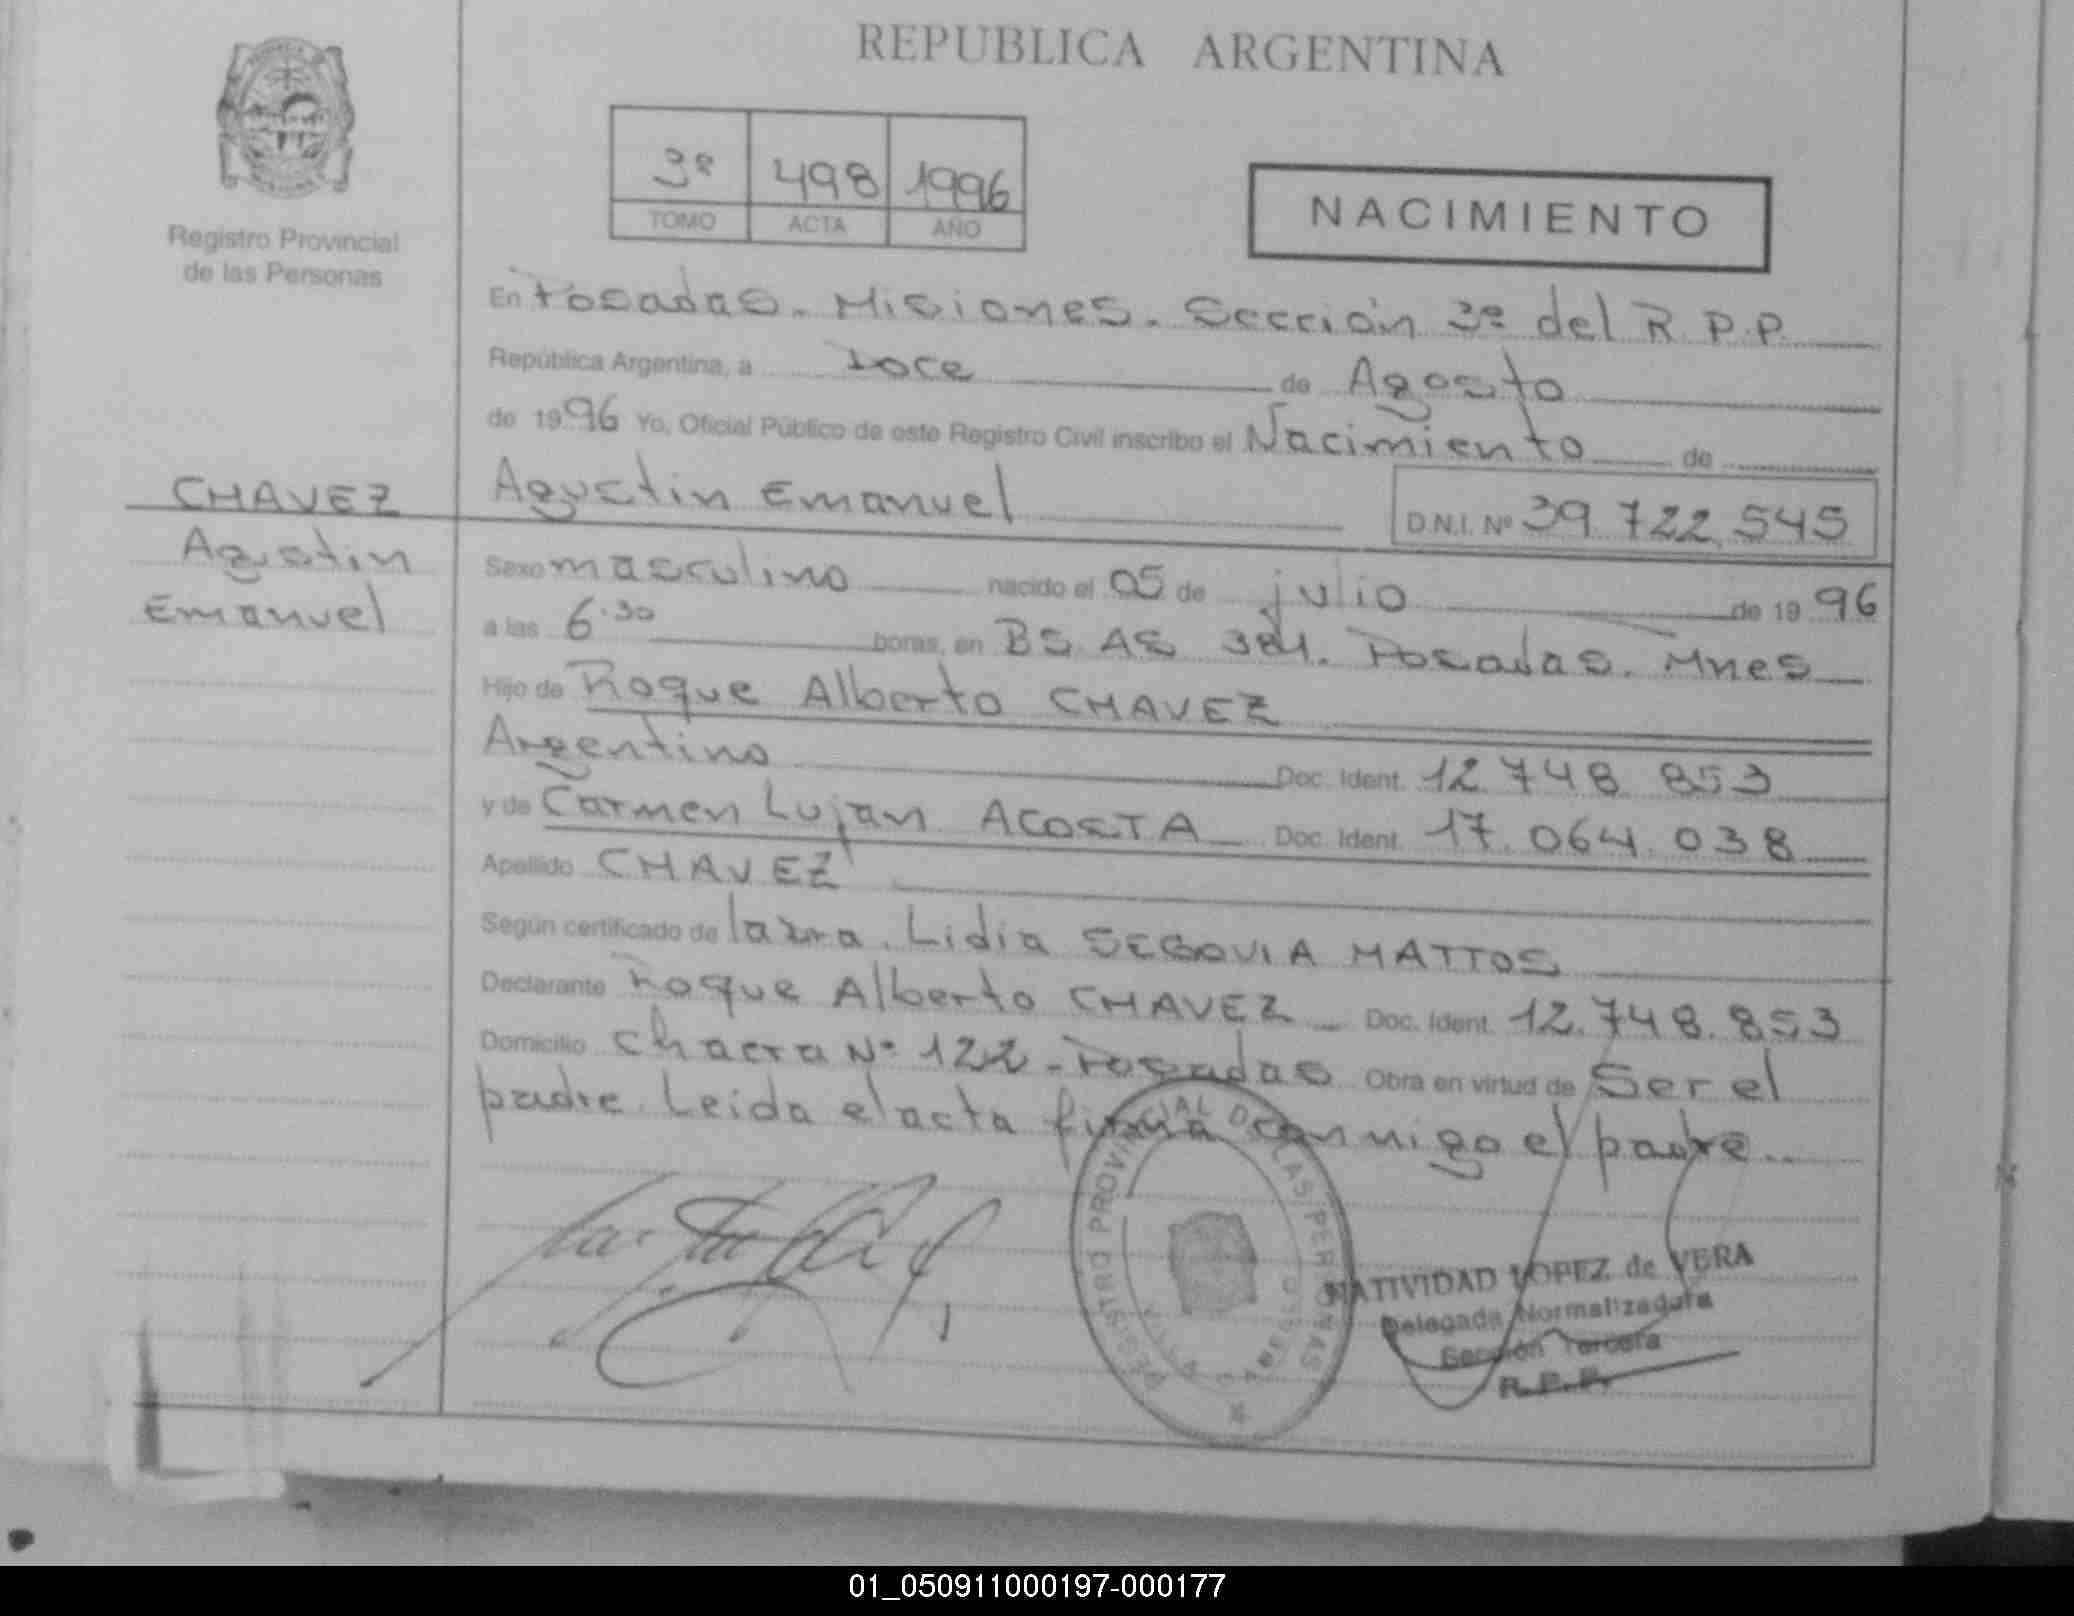 REPUBLICA ARGENTINA
3º 498 1996
TOMO ACTA AÑO
NACIMIENTO
Registro Provincial
de las Personas
En Posadas. Misiones. Sección 3º del R.P.P.
República Argentina, a Doce de Agosto
de 1996 Yo, Oficial Público de este Registro Civil inscribo el Nacimiento de
CHAVEZ
Agustin
Emanuel
Agustin Emanuel D.N.I. Nº 39.722.545
Sexo masculino nacido el 05 de julio de 19 96
a las 6.30 horas, en BS. AS 384. Posadas. Mnes
Hijo de Roque Alberto CHAVEZ
Argentino Doc. Ident. 12.748.853
y de Carmen Lujan ACOSTA Doc. Ident. 17.064.038
Apellido CHAVEZ
Según certificado de la Lidia SEGOVIA MATTOS
Declarante Roque Alberto CHAVEZ Doc. Ident. 12.748.853
Domicilio Chacra Nº 122 - Posadas Obra en virtud de Ser el
padre. Leida el acta firma conmigo el padre..
REGISTRO PROVINCIAL DE LAS PERSONAS
NATIVIDAD LOPEZ de VERA
Delegada Normalizadora
Sección Tercera
R.P.P.
01_050911000197-000177